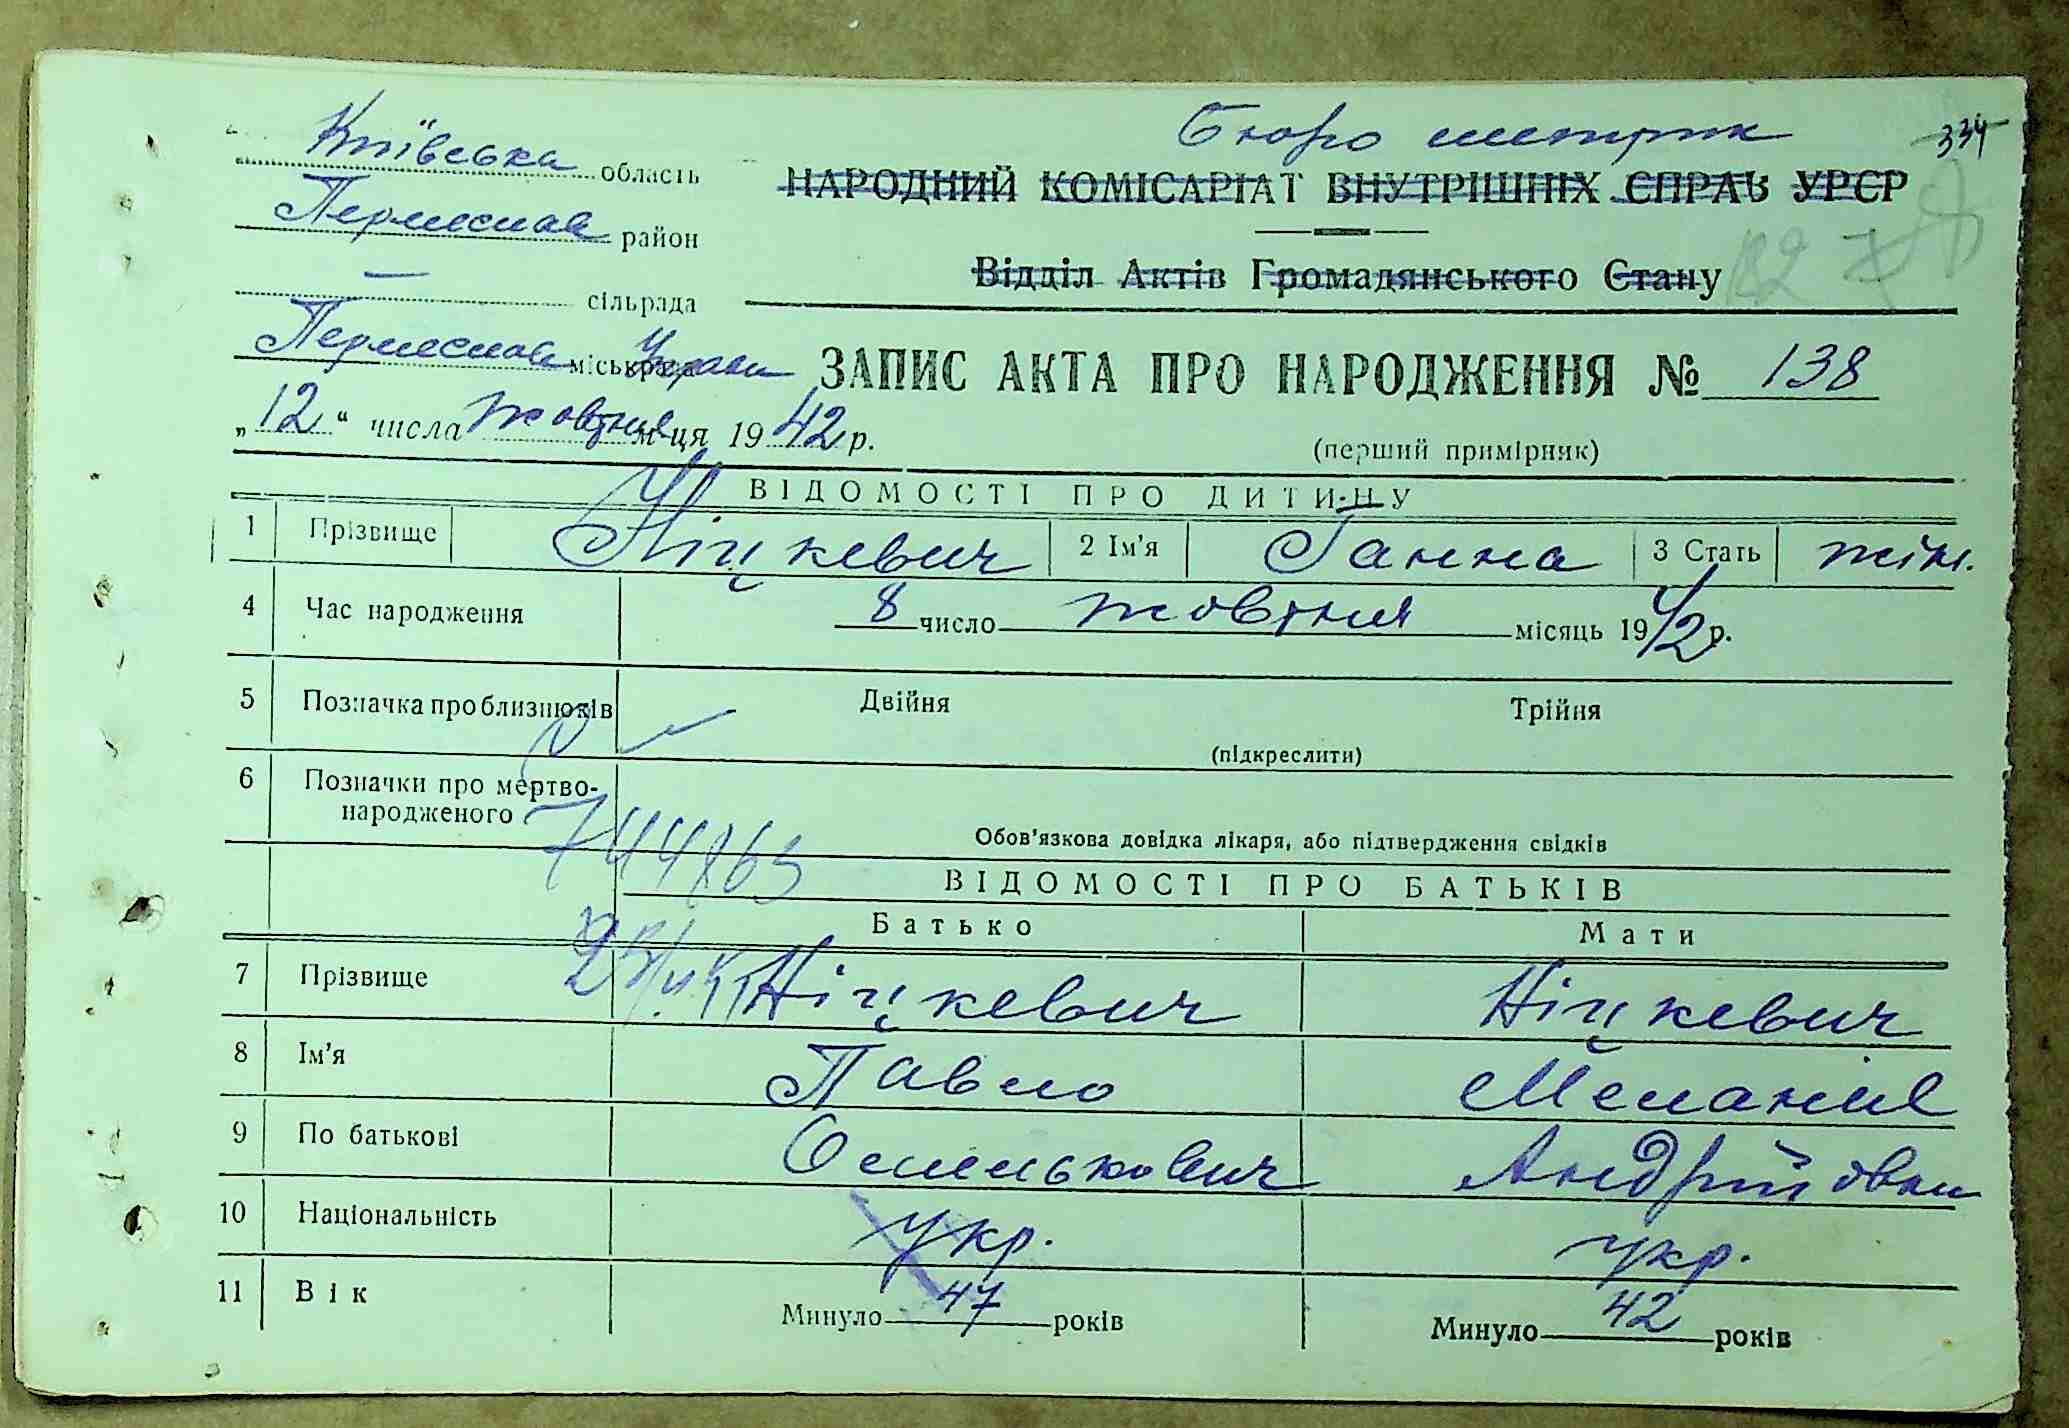 Київська область
Бюро метрик
334
НАРОДНИЙ КОМІСАРІАТ ВНУТРІШНІХ СПРАВ УРСР
Переяслав район
Відділ Актів Громадянського Стану
— сільрада
Переяслав міськрада Управи
ЗАПИС АКТА ПРО НАРОДЖЕННЯ № 138
„12“ числа жовтня м-ця 1942 р.
(перший примірник)
ВІДОМОСТІ ПРО ДИТИНУ
1 Прізвище Ніцкевич 2 Ім'я Ганна 3 Стать жін.
4 Час народження 8 число жовтня місяць 1942 р.
5 Позначка про близнюків Двійня Трійня
(підкреслити)
6 Позначки про мертво-
народженого
Обов'язкова довідка лікаря, або підтвердження свідків
ВІДОМОСТІ ПРО БАТЬКІВ
Батько Мати
7 Прізвище Ніцкевич Ніцкевич
8 Ім'я Павло Меланія
9 По батькові Омелькович Андріївна
10 Національність укр. укр.
11 Вік Минуло 47 років Минуло 42 років